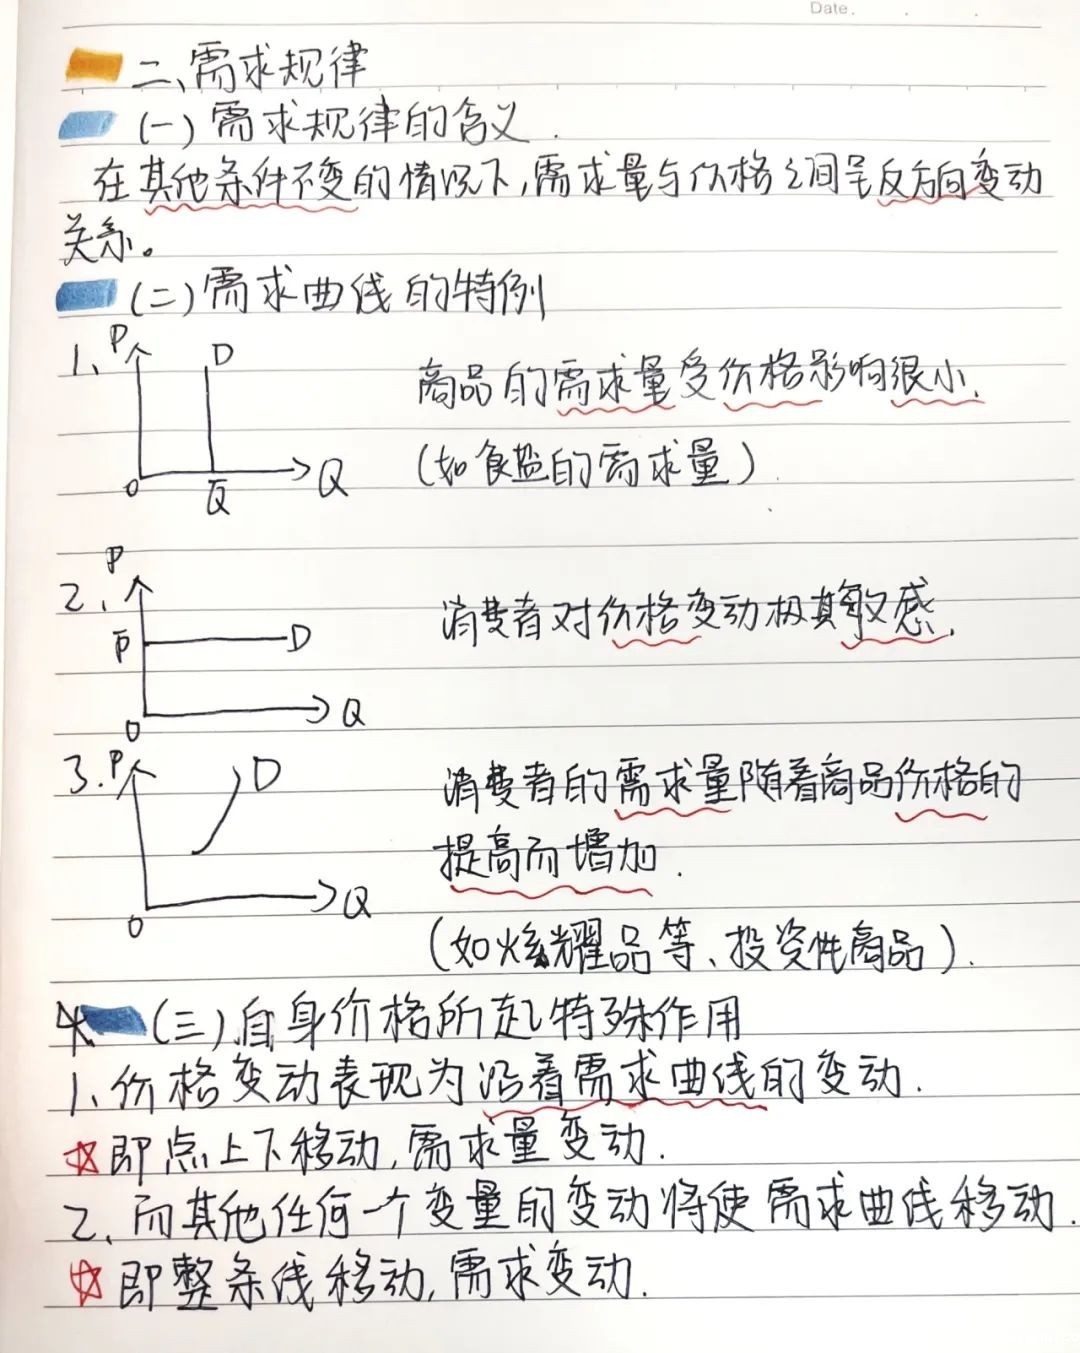 Date.
二、需求规律
(一)需求规律的含义.
在其他条件不变的情况下,需求量与价格之间呈反方向变动
关系。
(二)需求曲线的特例
1、P D
商品的需求量受价格影响很小.
O Q̅ Q
(如食盐的需求量).
P
2、
P̅ D
消费者对价格变动极其敏感.
O Q
3.P D
消费者的需求量随着商品价格的
提高而增加.
O Q
(如炫耀品等、投资性商品).
(三)自身价格所起特殊作用
1、价格变动表现为沿着需求曲线的变动.
☆即点上下移动,需求量变动.
2、而其他任何一个变量的变动将使需求曲线移动.
☆即整条线移动,需求变动.